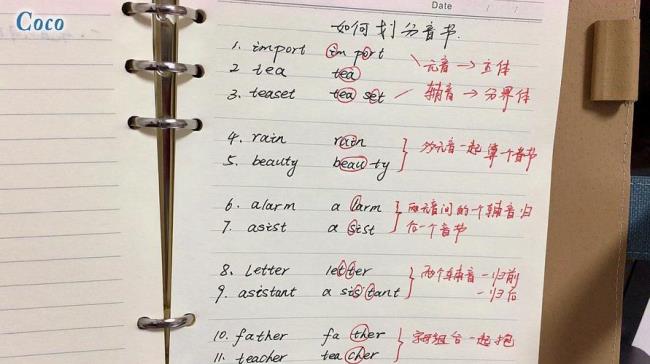 Coco
Date
如何划分音节.
1. import im port
元音 → 主体
2 tea tea
3. teaset tea set 辅音 → 分界体
4. rain rain
为元音一起算个音节
5. beauty beau ty
6. alarm a larm
两元音间的一个辅音归
7. asist a sist 后一个音节
8. Letter letter 两个辅音一归前
9. asistant a sis tant 一归后
10. father fa ther
字母组合一起抱
11. teacher tea cher